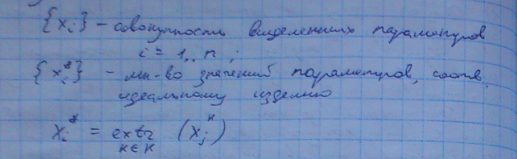 {x_i} - совокупность выделенных параметров
i = 1..n ;
{x_i^*} - мн-во значений параметров, соотв.
идеальному изделию
x_i^* = extr_{к∈К} (x_j^к)